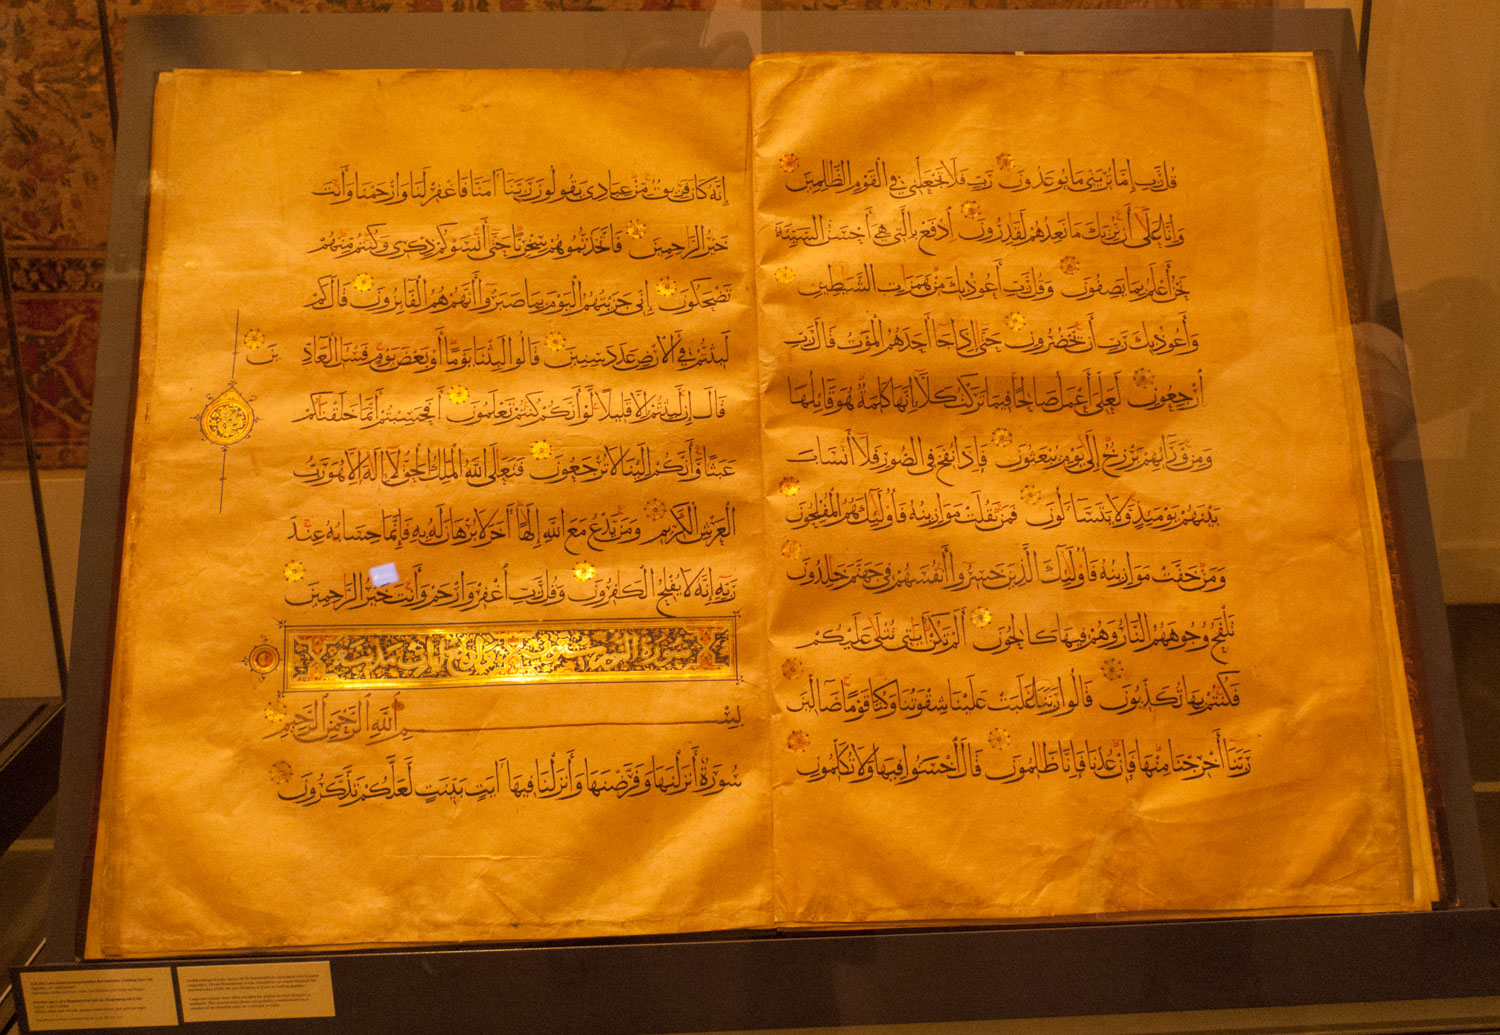 قُل رَّبِّ إِمَّا تُرِيَنِّي مَا يُوعَدُونَ رَبِّ فَلَا تَجْعَلْنِي فِي الْقَوْمِ الظَّالِمِينَ
وَإِنَّا عَلَى أَن نُّرِيَكَ مَا نَعِدُهُمْ لَقَدِرُونَ ادْفَعْ بِالَّتِي هِيَ أَحْسَنُ السَّيِّئَةَ
نَحْنُ أَعْلَمُ بِمَا يَصِفُونَ وَقُل رَّبِّ أَعُوذُ بِكَ مِنْ هَمَزَتِ الشَّيَطِينِ
وَأَعُوذُ بِكَ رَبِّ أَن يَحْضُرُونِ حَتَّى إِذَا جَاءَ أَحَدَهُمُ الْمَوْتُ قَالَ رَبِّ
ارْجِعُونِ لَعَلِّي أَعْمَلُ صَالِحًا فِيمَا تَرَكْتُ كَلَّا إِنَّهَا كَلِمَةٌ هُوَ قَائِلُهَا
وَمِن وَرَائِهِم بَرْزَخٌ إِلَى يَوْمِ يُبْعَثُونَ فَإِذَا نُفِخَ فِي الصُّورِ فَلَا أَنسَابَ
بَيْنَهُمْ يَوْمَئِذٍ وَلَا يَتَسَاءَلُونَ فَمَن ثَقُلَتْ مَوَازِينُهُ فَأُولَئِكَ هُمُ الْمُفْلِحُونَ
وَمَنْ خَفَّتْ مَوَازِينُهُ فَأُولَئِكَ الَّذِينَ خَسِرُوا أَنفُسَهُمْ فِي جَهَنَّمَ خَالِدُونَ
تَلْفَحُ وُجُوهَهُمُ النَّارُ وَهُمْ فِيهَا كَالِحُونَ أَلَمْ تَكُنْ آيَاتِي تُتْلَى عَلَيْكُمْ
فَكُنتُم بِهَا تُكَذِّبُونَ قَالُوا رَبَّنَا غَلَبَتْ عَلَيْنَا شِقْوَتُنَا وَكُنَّا قَوْمًا ضَالِّينَ
رَبَّنَا أَخْرِجْنَا مِنْهَا فَإِنْ عُدْنَا فَإِنَّا ظَالِمُونَ قَالَ اخْسَئُوا فِيهَا وَلَا تُكَلِّمُونِ
إِنَّهُ كَانَ فَرِيقٌ مِّنْ عِبَادِي يَقُولُونَ رَبَّنَا آمَنَّا فَاغْفِرْ لَنَا وَارْحَمْنَا وَأَنتَ
خَيْرُ الرَّاحِمِينَ فَاتَّخَذْتُمُوهُمْ سِخْرِيًّا حَتَّى أَنسَوْكُمْ ذِكْرِي وَكُنتُم مِّنْهُمْ
تَضْحَكُونَ إِنِّي جَزَيْتُهُمُ الْيَوْمَ بِمَا صَبَرُوا أَنَّهُمْ هُمُ الْفَائِزُونَ قَالَ كَمْ
لَبِثْتُمْ فِي الْأَرْضِ عَدَدَ سِنِينَ قَالُوا لَبِثْنَا يَوْمًا أَوْ بَعْضَ يَوْمٍ فَسْئَلِ الْعَادِّينَ
قَالَ إِن لَّبِثْتُمْ إِلَّا قَلِيلًا لَّوْ أَنَّكُمْ كُنتُمْ تَعْلَمُونَ أَفَحَسِبْتُمْ أَنَّمَا خَلَقْنَاكُمْ
عَبَثًا وَأَنَّكُمْ إِلَيْنَا لَا تُرْجَعُونَ فَتَعَالَى اللَّهُ الْمَلِكُ الْحَقُّ لَا إِلَهَ إِلَّا هُوَ رَبُّ
الْعَرْشِ الْكَرِيمِ وَمَن يَدْعُ مَعَ اللَّهِ إِلَهًا آخَرَ لَا بُرْهَانَ لَهُ بِهِ فَإِنَّمَا حِسَابُهُ عِندَ
رَبِّهِ إِنَّهُ لَا يُفْلِحُ الْكَافِرُونَ وَقُل رَّبِّ اغْفِرْ وَارْحَمْ وَأَنتَ خَيْرُ الرَّاحِمِينَ
سورة النور
بِسْمِ اللَّهِ الرَّحْمَنِ الرَّحِيمِ
سُورَةٌ أَنزَلْنَهَا وَفَرَضْنَهَا وَأَنزَلْنَا فِيهَا آيَتٍ بَيِّنَتٍ لَّعَلَّكُمْ تَذَكَّرُونَ